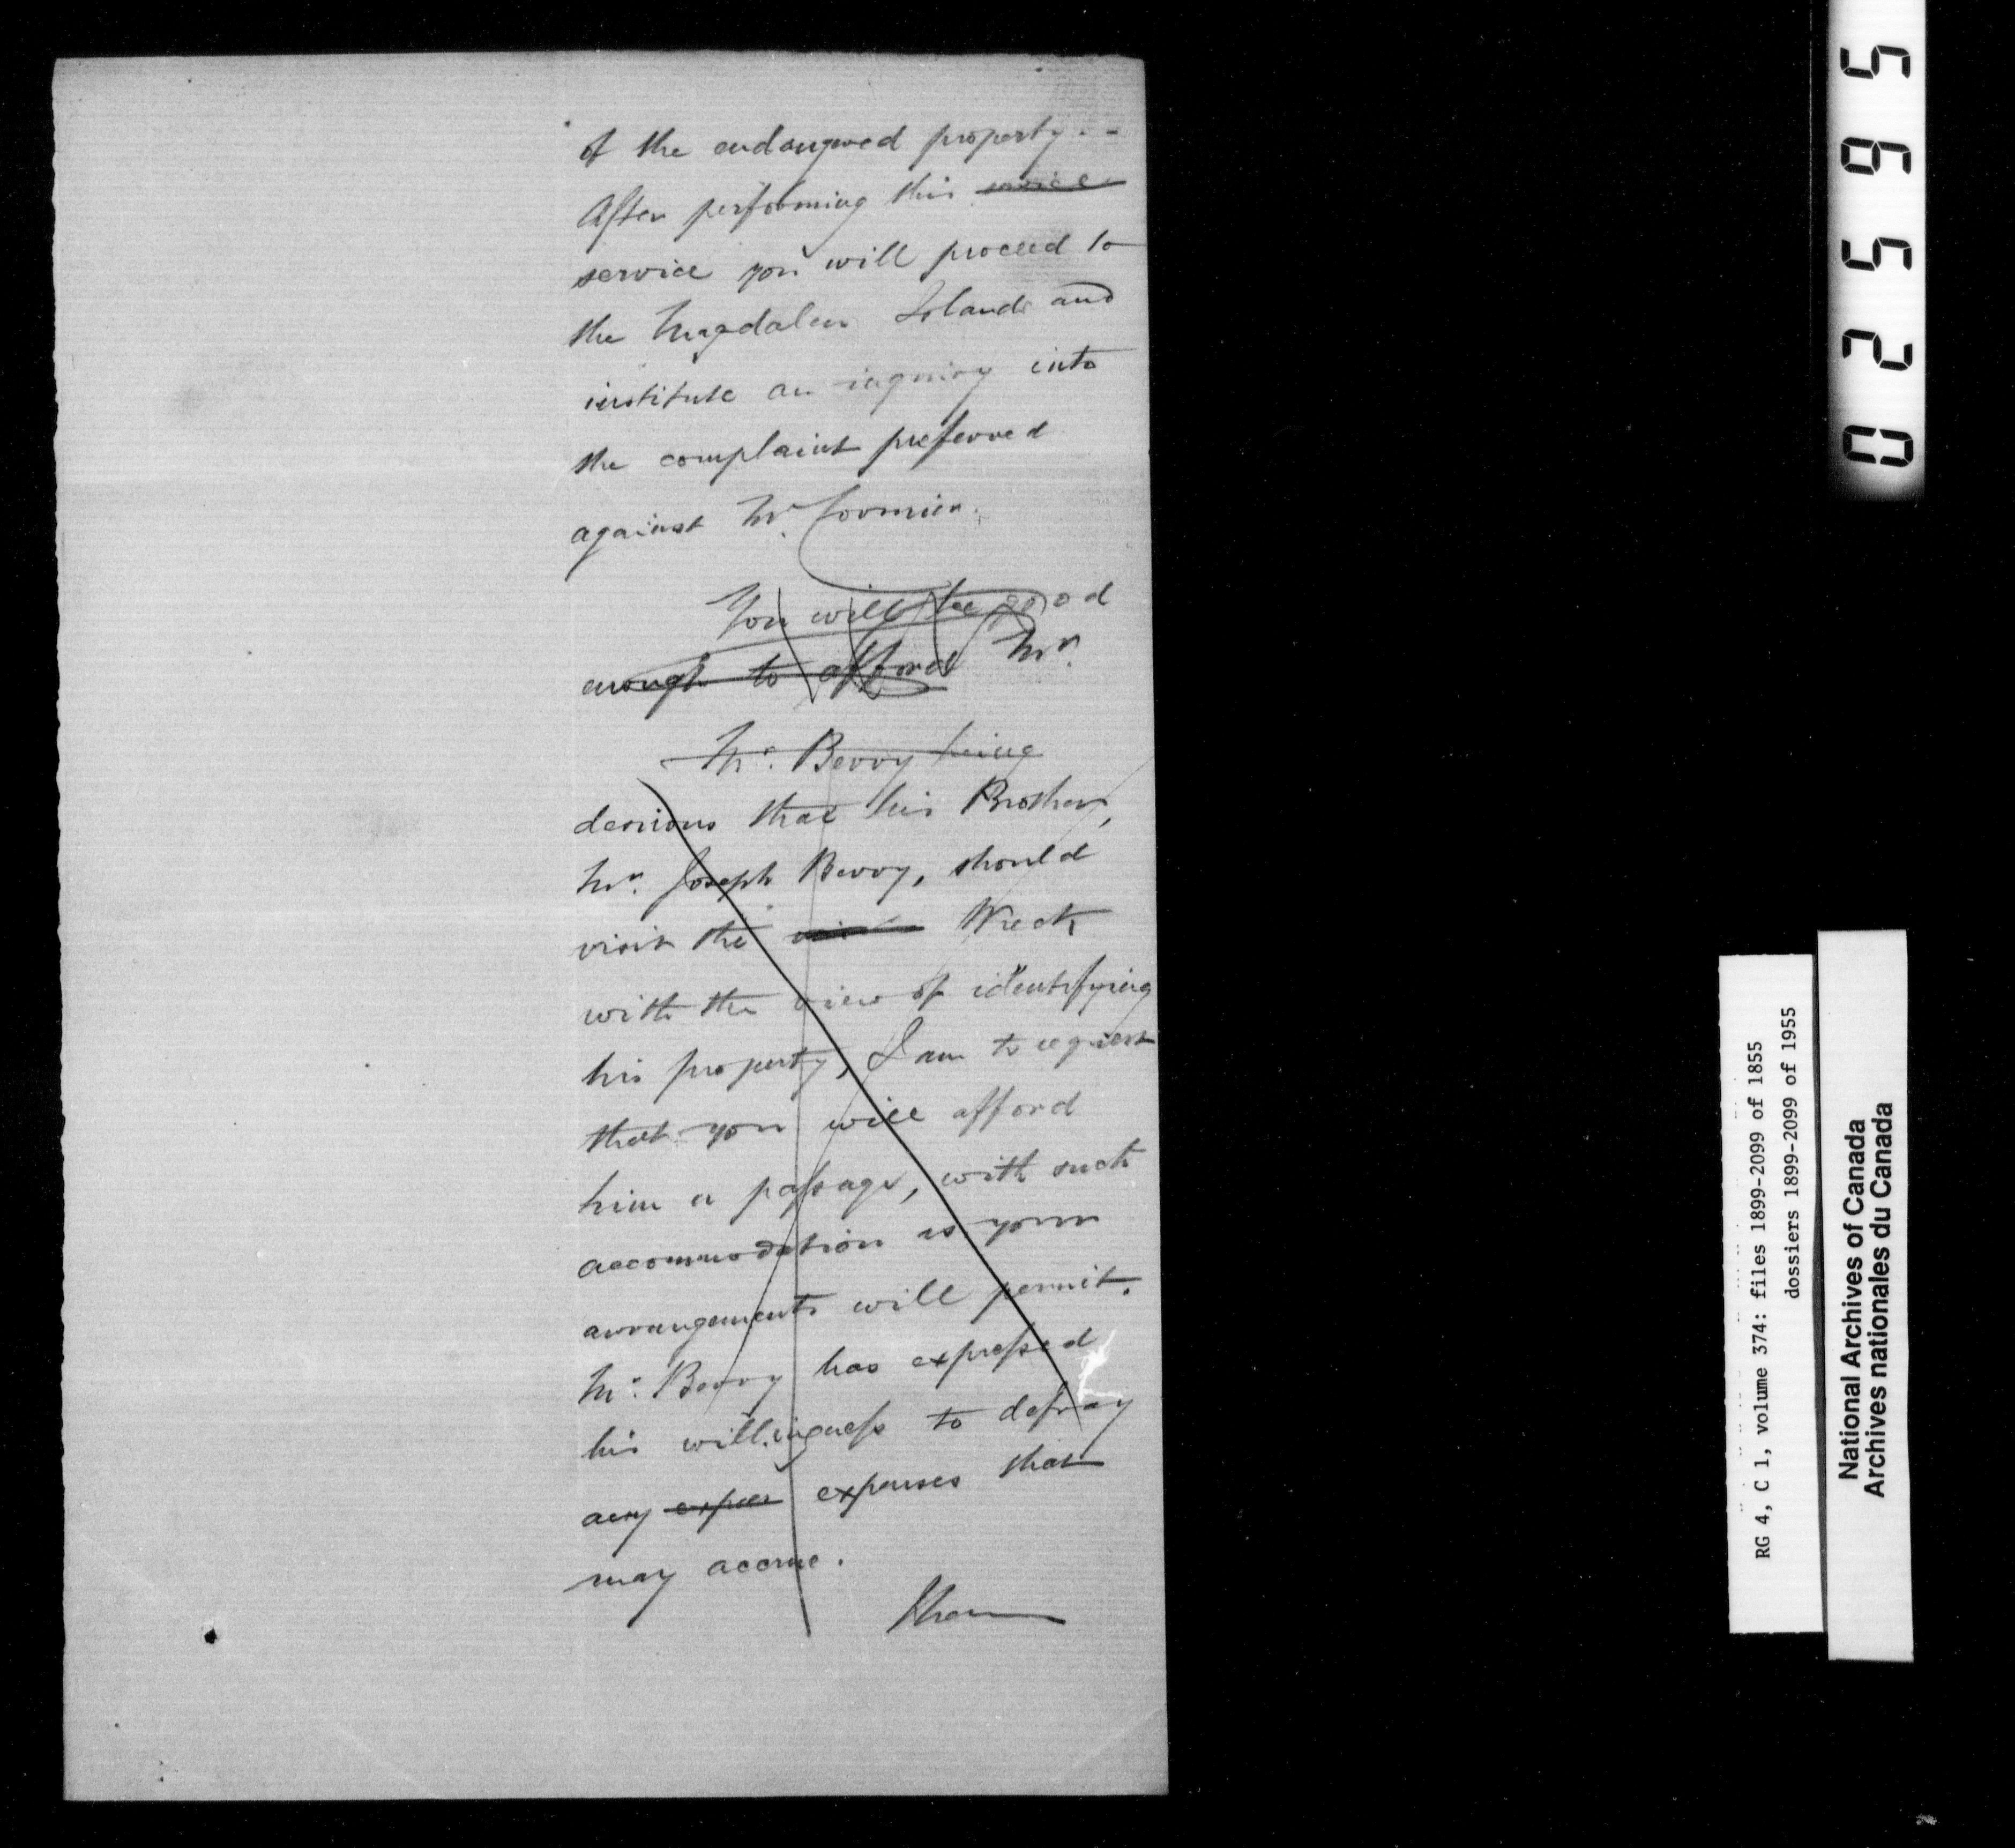 of the endangered property. -
After performing this service
service you will proceed to
the Magdalen Islands and
institute an inquiry into
the complaint preferred
against Mr. Cormier.
You will be good
enough to afford Mr.
Mr. Berry being
desirous that his Brother,
Mr. Joseph Berry, should
visit the Wreck
with the view of identifying
his property, I am to request
that you will afford
him a passage, with such
accommodation as your
arrangements will permit.
Mr. Berry has expressed
his willingness to defray
any expen expenses that
may accrue.
I have
02595
RG 4, C 1, volume 374: files 1899-2099 of 1855
dossiers 1899-2099 of 1955
National Archives of Canada
Archives nationales du Canada